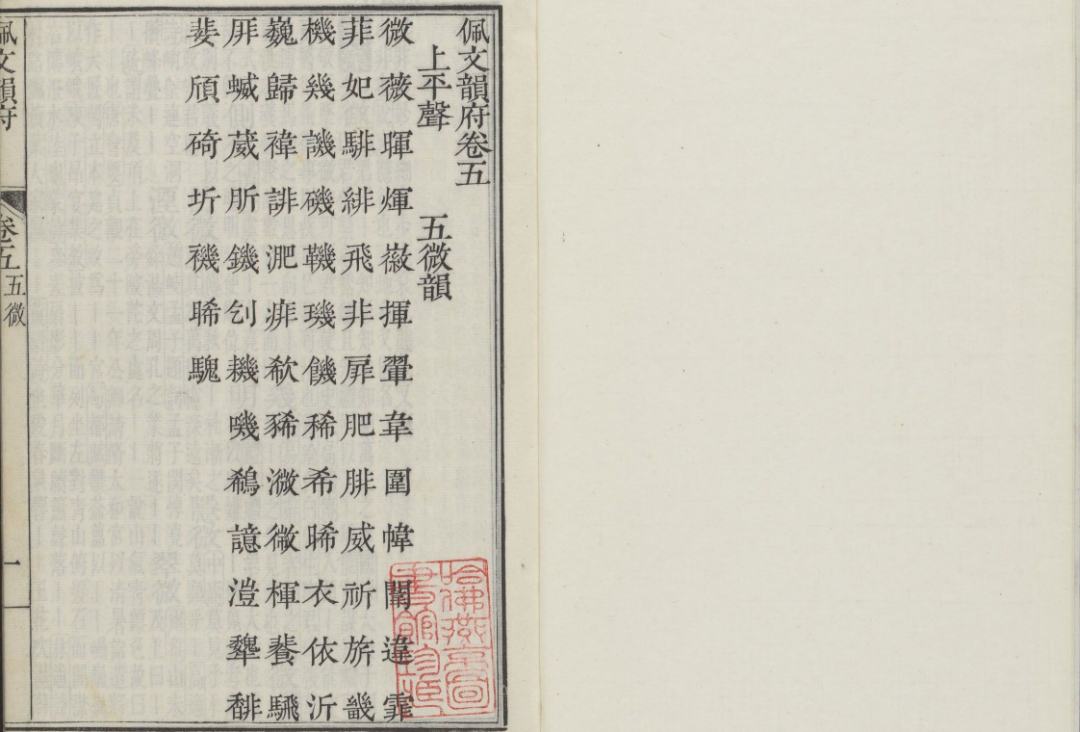 佩文韻府卷五
上平聲 五微韻
微薇暉煇徽揮翬韋圍幃闈違霏
菲妃騑緋飛非扉肥腓威祈旂畿
機幾譏磯鞿璣饑稀希晞衣依沂
巍歸禕誹淝痱欷豨溦㣲楎蜚騛
厞蝛葳肵鐖刉耭嘰鵗譩溰犩馡
婓頎碕圻禨睎騩
佩文韻府
卷五 五微
一
哈佛燕京圖
書館珍藏